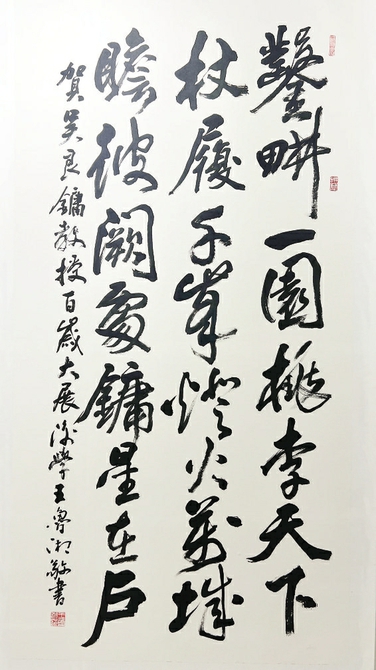 鑿畊一園桃李天下
杖履千峯燈火萬城
瞻彼闕處鏞星在戶
賀吳良鏞教授百歲大展後學王魯湘敬書